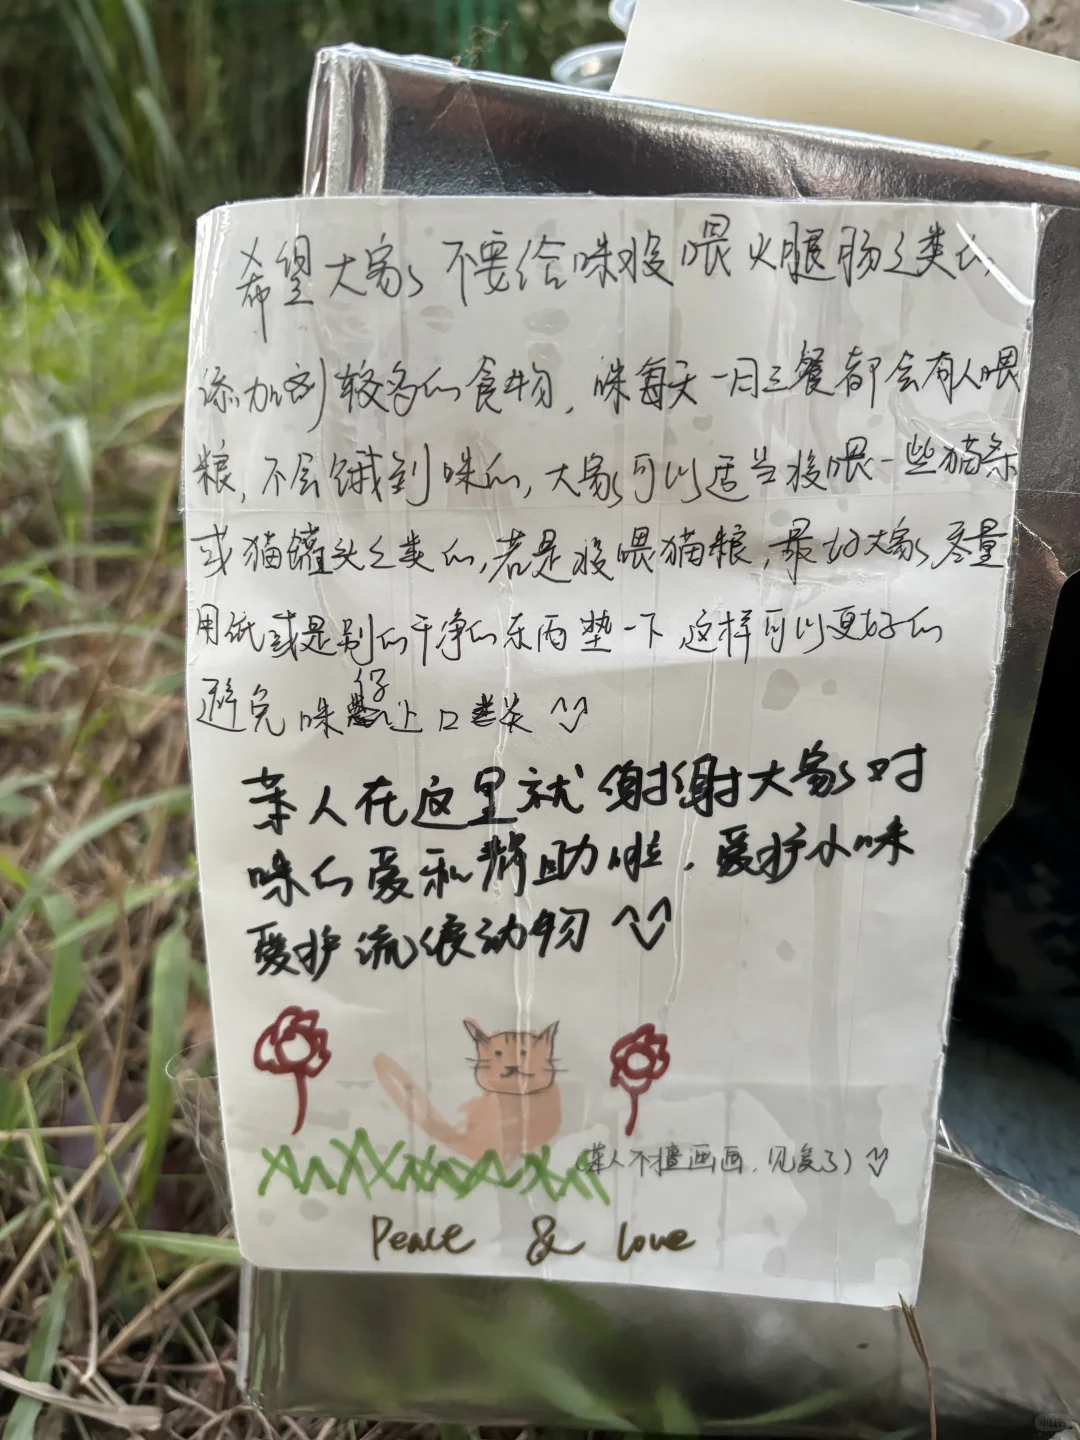 希望大家不要给咪投喂火腿肠之类的
添加剂较多的食物，咪每天一日三餐都会有人喂
粮，不会饿到咪的，大家可以适当投喂一些猫条
或猫罐头之类的，若是投喂猫粮，最好大家尽量
用纸或是别的干净的东西垫一下，这样可以更好的
避免咪得上口炎
某人在这里就谢谢大家对
咪的爱和帮助啦，爱护小咪
爱护流浪动物
（某人不擅画画，见笑了）
Peace & love